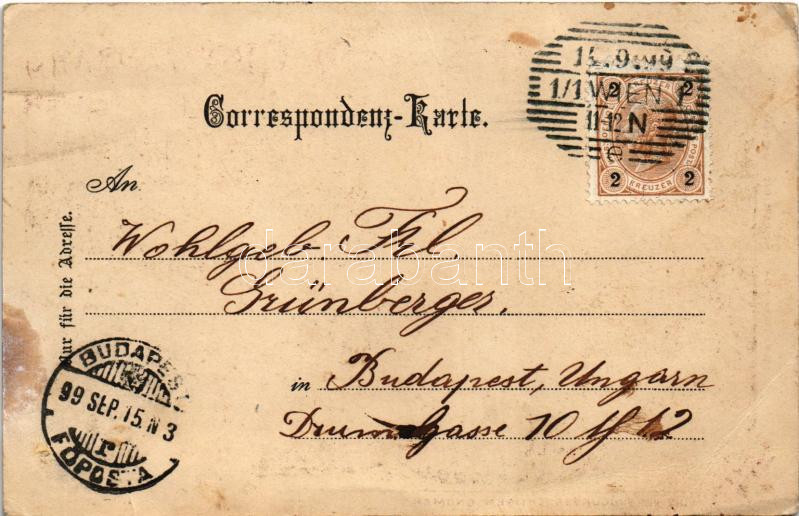 Correspondenz-Karte.
14.9.99
1/1 WIEN 1
11-12 N
2 2
2 KREUZER 2
An
Wohlgeb. Frl.
Grünberger.
in Budapest, Ungarn
gasse 10
Nur für die Adresse.
BUDAPEST
99 SEP. 15. N 3
FŐPOSTA
darabanth